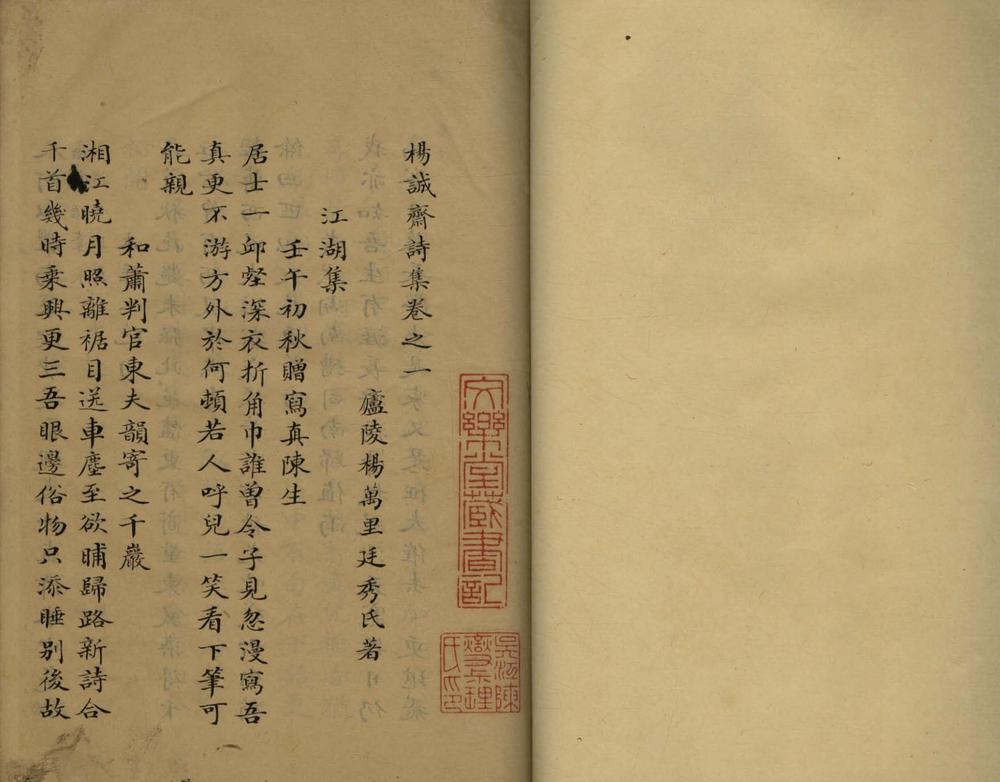 楊誠齋詩集卷之一
廬陵楊萬里廷秀氏著
江湖集
壬午初秋贈寫真陳生
居士一邱壑深衣折角巾誰曾令子見忽漫寫吾
真更不游方外於何頓若人呼兒一笑看下筆可
能親
和蕭判官東夫韻寄之千巖
湘江曉月照離裾目送車塵至欲晡歸路新詩合
千首幾時乘興更三吾眼邊俗物只添睡別後故
文樂堂藏書記
吳江陳
燮理
氏印